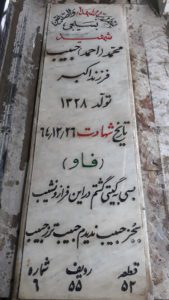 بسیجی
شهید
محمد(احمد)حبیب
فرزند اکبر
تولد ۱۳۲۸
تاریخ شهادت ۶۴/۱۲/۲۶
(فاو)
بسی به گیتی گشتم در این فراز و نشیب
بجز حبیب ندیدم حبیب تر ز حبیب
قطعه ردیف شماره
۵۲ ۵۵ ۶